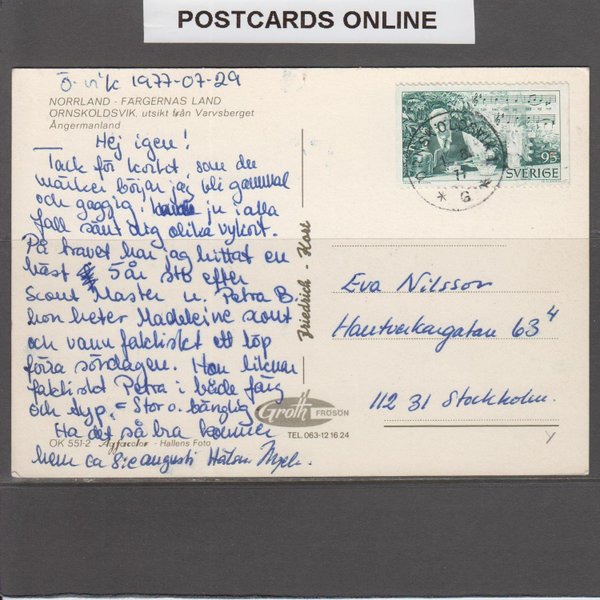 POSTCARDS ONLINE
Ö-vik 1977-07-29
NORRLAND - FÄRGERNAS LAND
ÖRNSKÖLDSVIK, utsikt från Varvsberget
Ångermanland
Hej igen!
Tack för kortet, som du
märker börjar jag bli gammal
och gaggig i ju i alla
fall sänt dig olika vykort.
På travet har jag hittat en
häst 5 år sto efter
Scout Master u. Petra B.
hon heter Madeleine scout
och vann faktiskt ett lopp
förra söndagen. Hon liknar
faktiskt Petra i både färg
och typ. = Stor o. bånglig
Ha det så bra kommer
hem ca 8:e augusti Hälsn
OK 551-2 Agfacolor - Hallens Foto
Friedrich - Karl
Gröth FRÖSÖN
TEL. 063-12 16 24
95
SVERIGE
G
Eva Nilsson
Hantverkargatan 63 4
112 31 Stockholm.